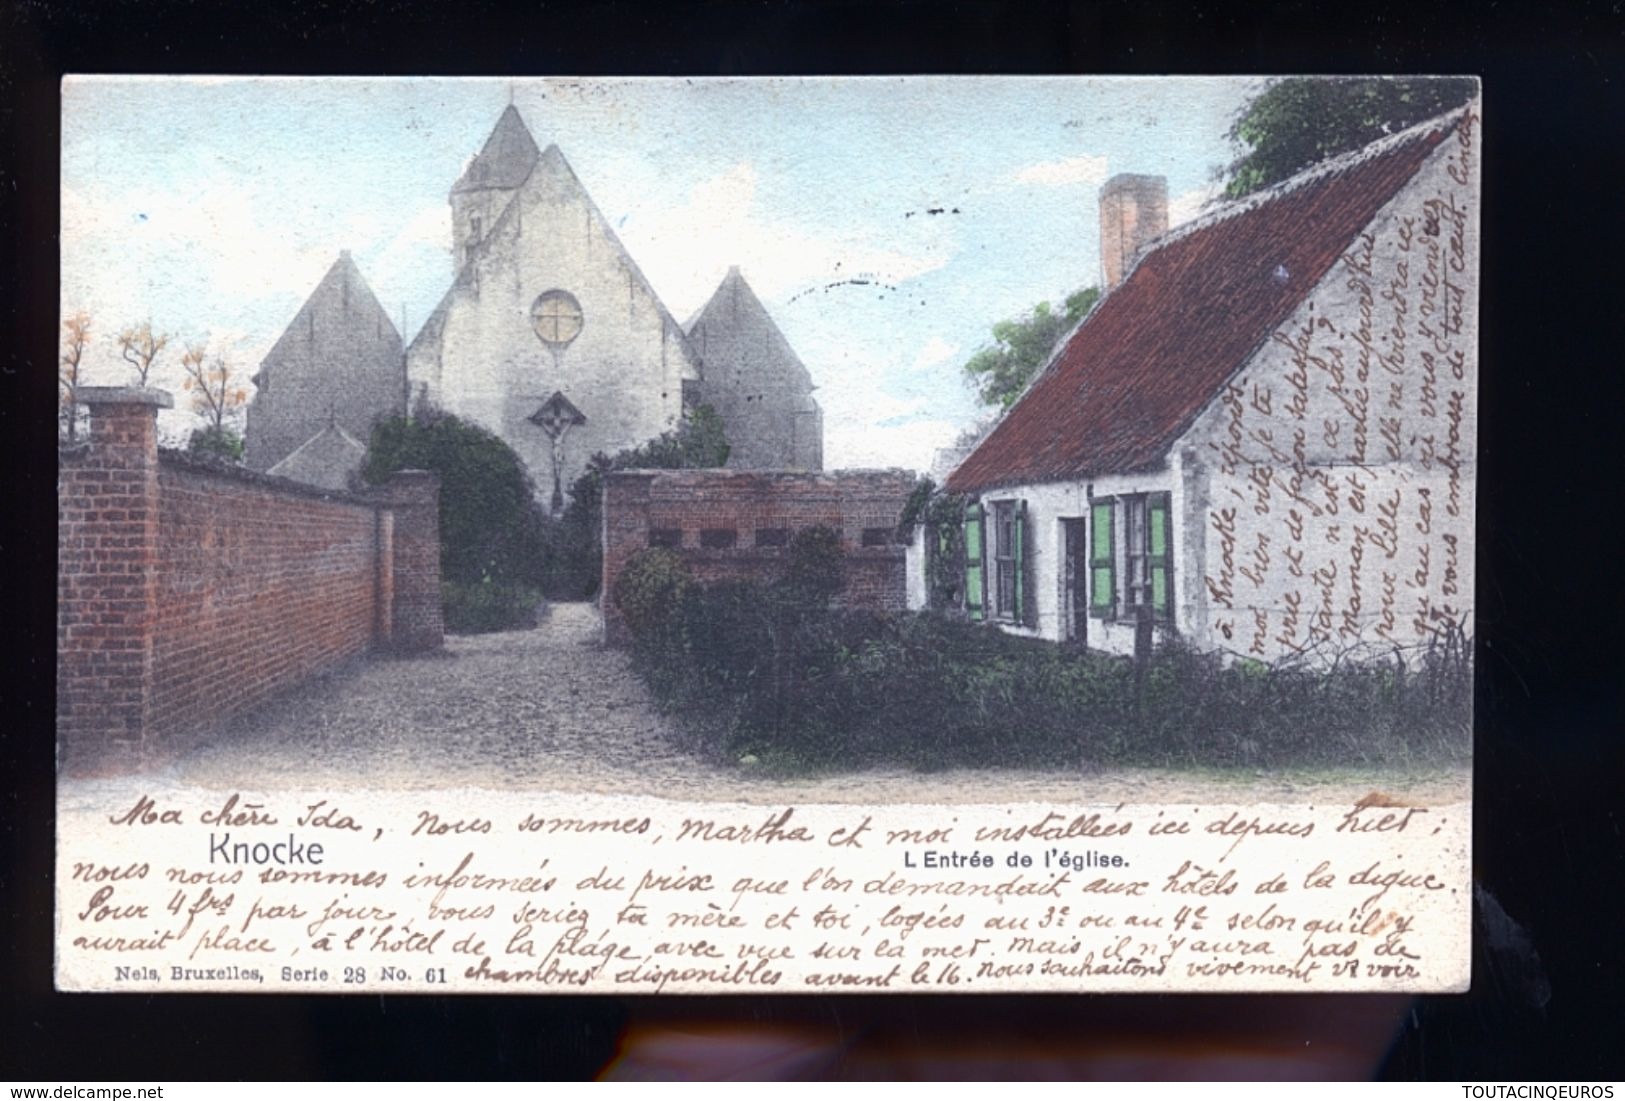 Ma chère Ida, nous sommes, Martha et moi installées ici depuis hier ;
Knocke
L Entrée de l'église.
nous nous sommes informées du prix que l'on demandait aux hôtels de la digue.
Pour 4 frs par jour, vous seriez ta mère et toi, logées au 3e ou au 4e selon qu'il y
aurait place, à l'hôtel de la plage avec vue sur la mer. Mais il n'y aura pas de
Nels, Bruxelles, Serie 28 No. 61
chambres disponibles avant le 16. Nous souhaitons vivement vs voir
à Knocke, réponds-
moi bien vite je te
prie et de façon satisfai-
sante n'est ce pas ?
Maman est partie aujourd'hui
pour Lille, elle ne viendra ici
qu'au cas où vous y viendrez.
Je vous embrasse de tout cœur.
delcampe.net
TOUTACINQEUROS